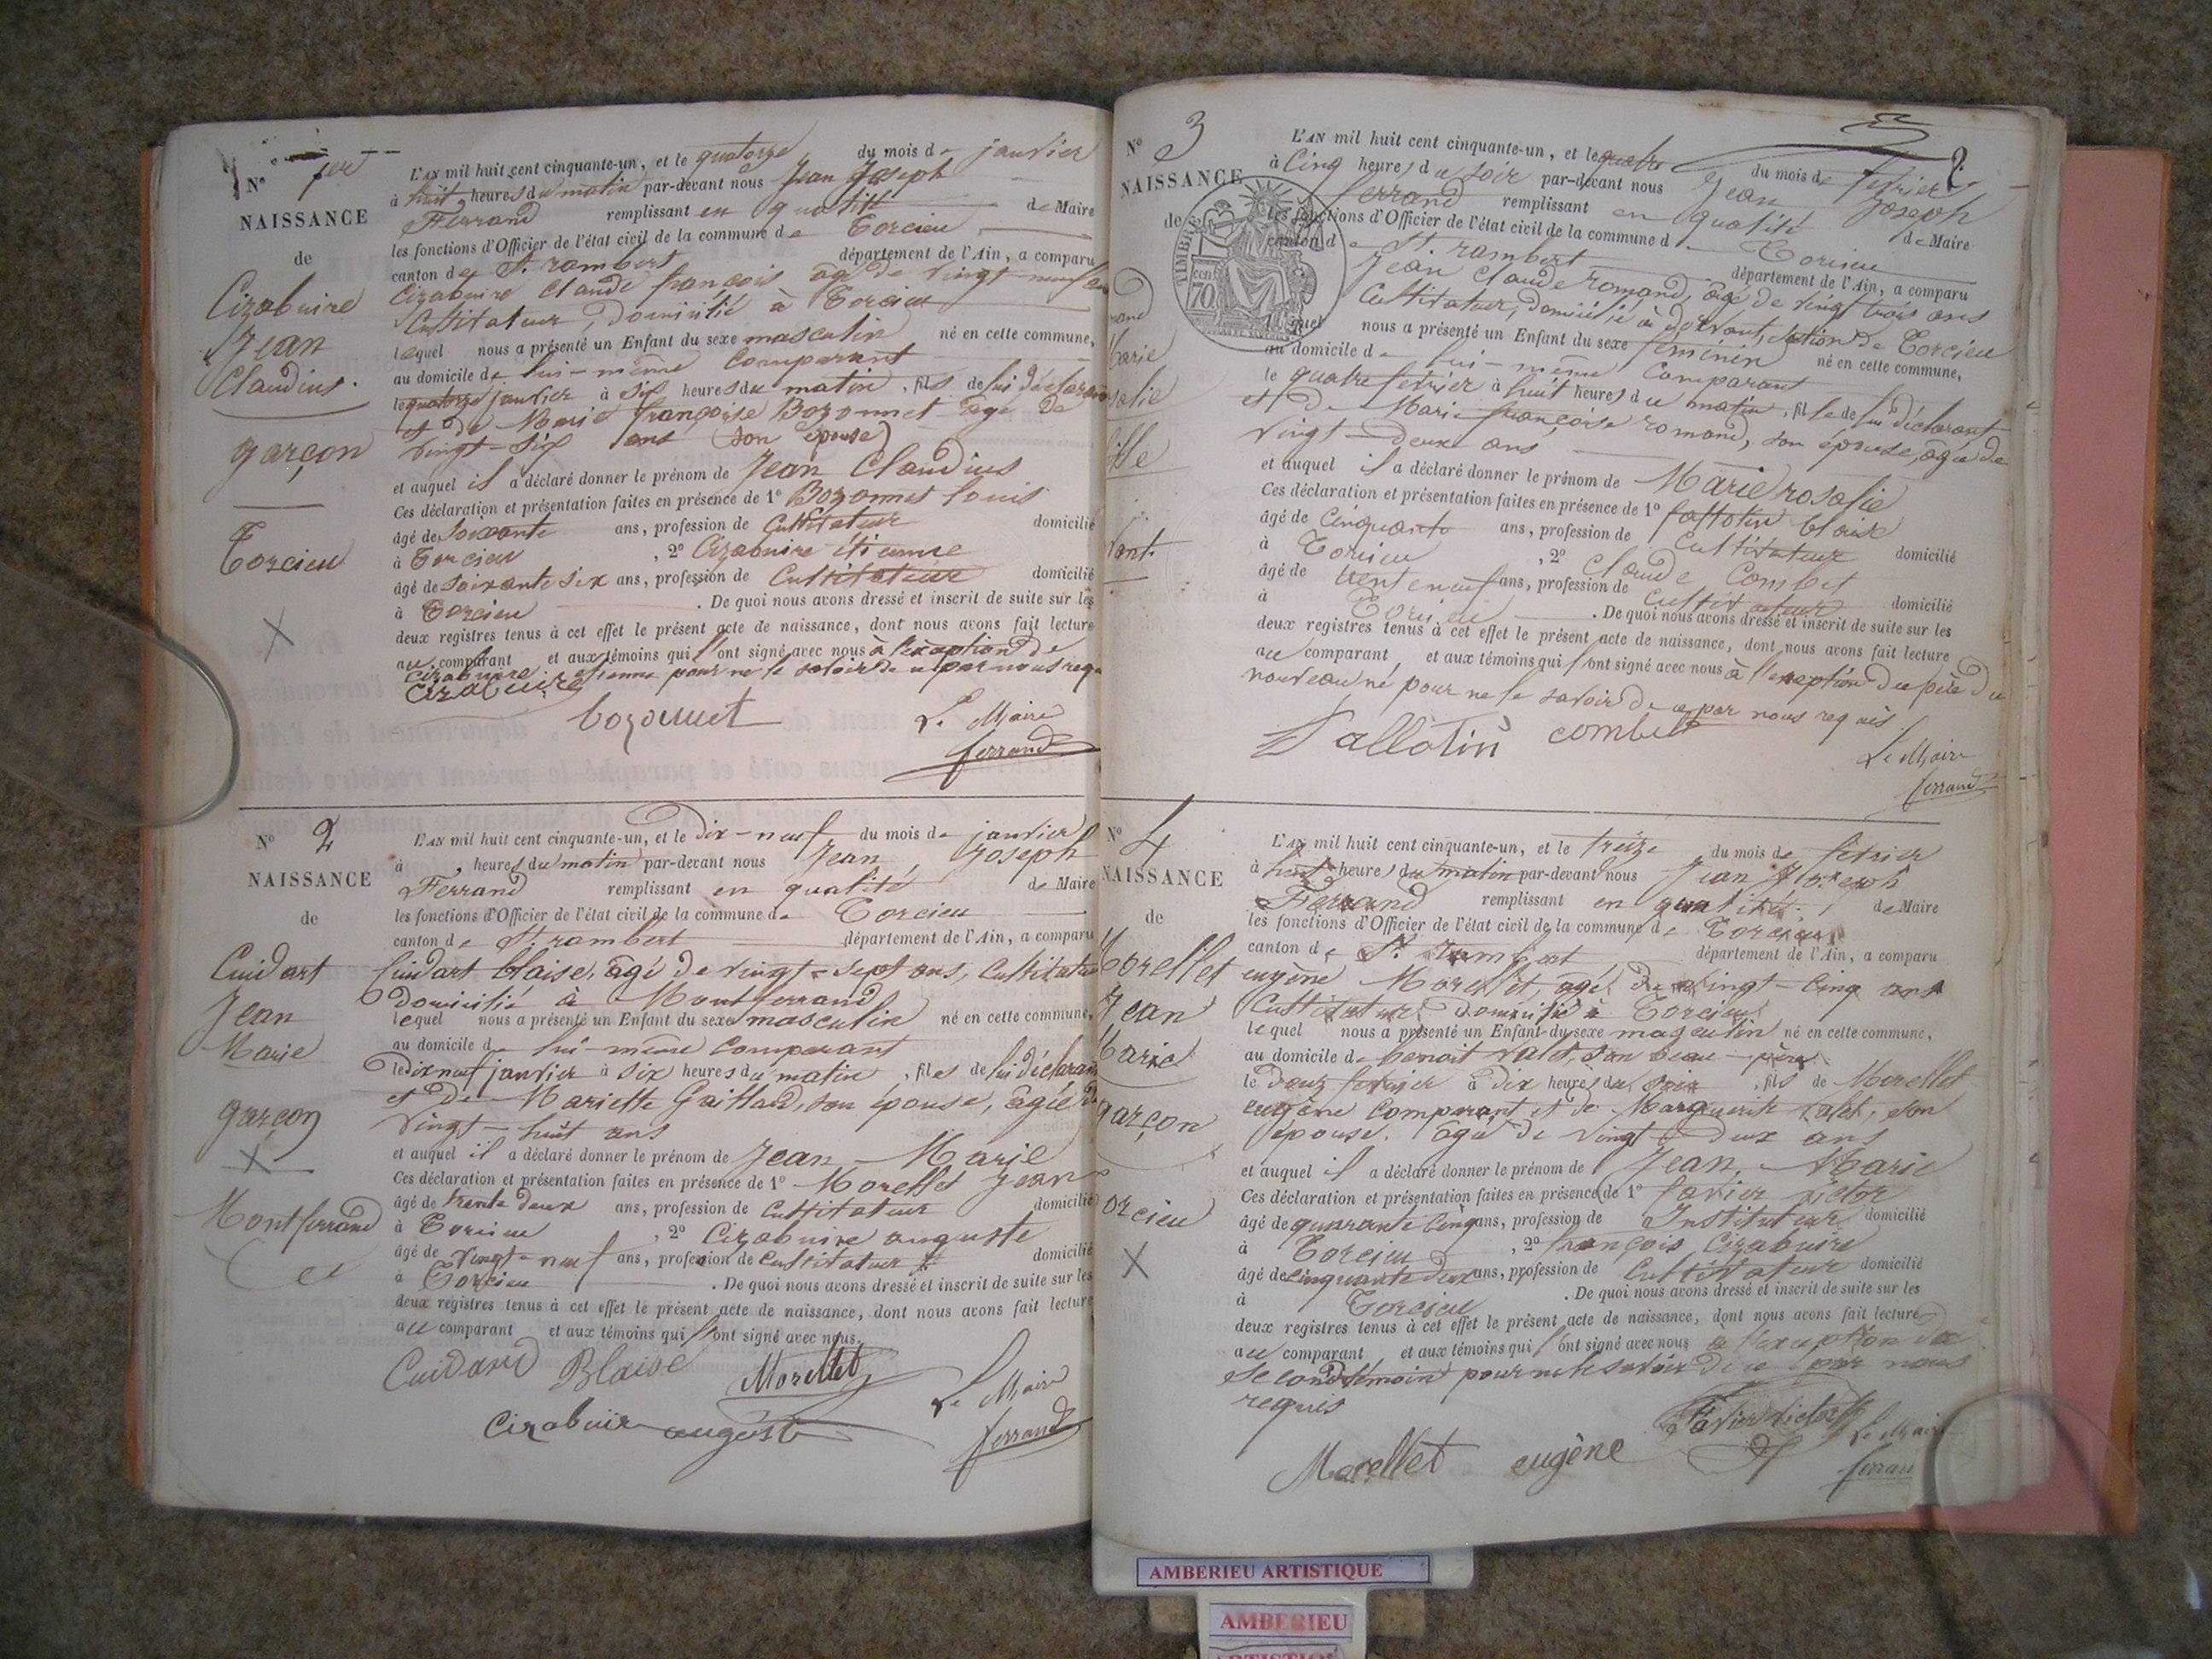 N° 1er
NAISSANCE
de
Cizabuire
Jean
Claudius.
garçon
Torcieu
L'AN mil huit cent cinquante-un, et le quatorze du mois de janvier
à huit heures du matin par-devant nous Jean Joseph
Ferrand remplissant en qualité de Maire
les fonctions d'Officier de l'état civil de la commune de Torcieu
canton de St. rambert département de l'Ain, a comparu
Cizabuire Claude françois âgé de vingt neuf ans
Cultivateur, Domicilié à Torcieu
lequel nous a présenté un Enfant du sexe masculin né en cette commune,
au domicile de lui-même Comparant
le quatorze janvier à six heures du matin, fils de lui déclarant
et de Marie françoise Bozonnet âgé de
vingt-six ans (son épouse)
et auquel il a déclaré donner le prénom de Jean Claudius
Ces déclaration et présentation faites en présence de 1° Bozonnet louis
âgé de soixante ans, profession de Cultivateur domicilié
à Torcieu, 2° Cizabuire étienne
âgé de soixante six ans, profession de Cultivateur domicilié
à Torcieu. De quoi nous avons dressé et inscrit de suite sur les
deux registres tenus à cet effet le présent acte de naissance, dont nous avons fait lecture
au comparant et aux témoins qui l'ont signé avec nous à l'exception de
cizabuire étienne pour ne le savoir de ce par nous requis
cizabuire
bozonnet
Le Maire
ferrand
N° 2
NAISSANCE
de
Cuidart
Jean
Marie
garçon
Montferrand
L'AN mil huit cent cinquante-un, et le Dix-neuf du mois de janvier
à heures du matin par-devant nous Jean Joseph
Ferrand remplissant en qualité de Maire
les fonctions d'Officier de l'état civil de la commune de Torcieu
canton de St. rambert département de l'Ain, a comparu
Cuidart blaise, âgé de vingt-sept ans, Cultivateur
Domicilié à Montferrand
lequel nous a présenté un Enfant du sexe masculin né en cette commune,
au domicile de lui-même Comparant
le dix neuf janvier à six heures du matin, fils de lui déclarant
et de Mariette Gaillard, son épouse, âgée de
vingt-huit ans
et auquel il a déclaré donner le prénom de Jean-Marie
Ces déclaration et présentation faites en présence de 1° Morellet Jean
âgé de trente deux ans, profession de Cultivateur domicilié
à Torcieu, 2° Cizabuire auguste
âgé de vingt-neuf ans, profession de Cultivateur domicilié
à Torcieu. De quoi nous avons dressé et inscrit de suite sur les
deux registres tenus à cet effet le présent acte de naissance, dont nous avons fait lecture
au comparant et aux témoins qui l'ont signé avec nous.
Cuidard Blaise Morellet
Cizabuire auguste
Le Maire
ferrand
N° 3
NAISSANCE
de
Marie
fille
TIMBRE
70 cent
2.
L'AN mil huit cent cinquante-un, et le quatre du mois de fevrier
à Cinq heures du soir par-devant nous Jean Joseph
ferrand remplissant en qualité de Maire
les fonctions d'Officier de l'état civil de la commune de Torcieu
canton de St. rambert département de l'Ain, a comparu
Jean Claude romand, âgé de vingt trois ans
Cultivateur, domicilié à dorvant, section de Torcieu
lequel nous a présenté un Enfant du sexe féminin né en cette commune,
au domicile de lui-même Comparant
le quatre fevrier à huit heures du matin, fille de lui déclarant
et de Marie françoise romand, son épouse, âgée de
vingt-deux ans
et auquel il a déclaré donner le prénom de Marie rosalie
Ces déclaration et présentation faites en présence de 1° fallotin blaise
âgé de Cinquante ans, profession de Cultivateur domicilié
à Torcieu, 2° Claude Combet
âgé de trente neuf ans, profession de Cultivateur domicilié
à Torcieu. De quoi nous avons dressé et inscrit de suite sur les
deux registres tenus à cet effet le présent acte de naissance, dont nous avons fait lecture
au comparant et aux témoins qui l'ont signé avec nous à l'exception du père du
nouveau né pour ne le savoir de ce par nous requis
fallotin combet
Le Maire
ferrand
N° 4
NAISSANCE
de
Morellet
Jean
Marie
garçon
orcieu
L'AN mil huit cent cinquante-un, et le treize du mois de fevrier
à huit heures du matin par-devant nous Jean Joseph
Ferrand remplissant en qualité de Maire
les fonctions d'Officier de l'état civil de la commune de Torcieu
canton de St. rambert département de l'Ain, a comparu
eugène Morellet, âgé de vingt-cinq ans
Cultivateur Domicilié à Torcieu
lequel nous a présenté un Enfant du sexe masculin né en cette commune,
au domicile de benoit valet, son beau-père
le douz fevrier à dix heures du soir, fils de Morellet
eugène Comparant et de Marguerite valet, son
épouse. âgée de vingt-deux ans
et auquel il a déclaré donner le prénom de Jean-Marie
Ces déclaration et présentation faites en présence de 1° favier victor
âgé de quarante cinq ans, profession de Instituteur domicilié
à Torcieu, 2° françois Cizabuire
âgé de cinquante deux ans, profession de Cultivateur domicilié
à Torcieu. De quoi nous avons dressé et inscrit de suite sur les
deux registres tenus à cet effet le présent acte de naissance, dont nous avons fait lecture
au comparant et aux témoins qui l'ont signé avec nous à l'exception du
second témoin pour ne le savoir de ce par nous
requis
Morellet eugène Favier victor
Le Maire
ferran
AMBERIEU ARTISTIQUE
AMBERIEU
ARTISTIQUE